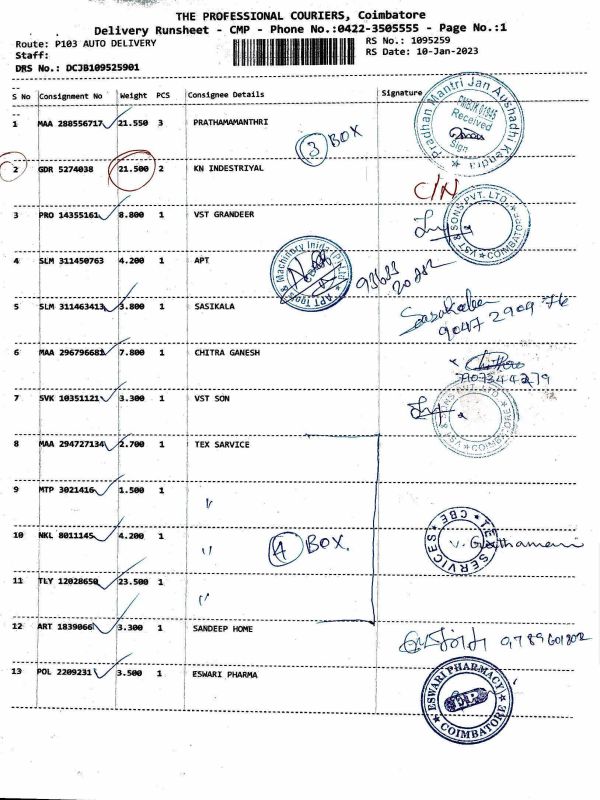 THE PROFESSIONAL COURIERS, Coimbatore
Delivery Runsheet - CMP - Phone No.:0422-3505555 - Page No.:1
Route: P103 AUTO DELIVERY RS No.: 1095259
Staff: RS Date: 10-Jan-2023
DRS No.: DCJB109525901
S No Consignment No Weight PCS Consignee Details Signature
1 MAA 288556717 21.550 3 PRATHAMAMANTHRI
3 BOX
Pradhan Mantri Jan Aushadhi Kendra
Received
Sign
2 GDR 5274038 21.500 2 KN INDESTRIYAL
C/N
3 PRO 14355161 8.800 1 VST GRANDEER
VST & SONS PVT. LTD. COIMBATORE
4 SLM 311450763 4.200 1 APT
APT Tools & Machinery India (P) Ltd
93633
20282
5 SLM 311463413 3.800 1 SASIKALA
9047 2909 76
6 MAA 296796682 7.800 1 CHITRA GANESH
7 SVK 10351121 3.300 1 VST SON
VST & SONS PVT. LTD. COIMBATORE
8 MAA 294727134 2.700 1 TEX SARVICE
9 MTP 3021416 1.500 1 "
10 NKL 8011145 4.200 1 "
4 BOX.
SERVICES CBE
11 TLY 12028650 23.500 1 "
12 ART 1839066 3.300 1 SANDEEP HOME
13 POL 2209231 3.500 1 ESWARI PHARMA
ESWARI PHARMACY COIMBATORE